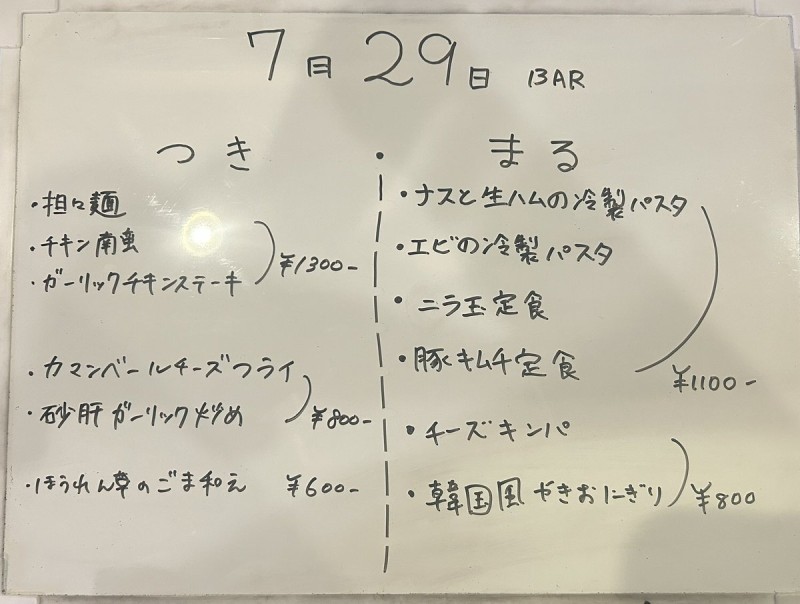 7月29日 BAR
つき
・担々麺
・チキン南蛮
・ガーリックチキンステーキ
¥1300-
・カマンベールチーズフライ
・砂肝ガーリック炒め
¥800-
・ほうれん草のごま和え ¥600-
・まる
・ナスと生ハムの冷製パスタ
・エビの冷製パスタ
・ニラ玉定食
・豚キムチ定食
¥1100-
・チーズキンパ
・韓国風やきおにぎり
¥800